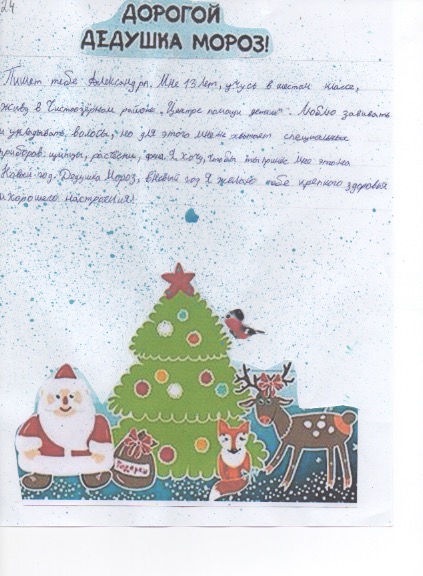 24
ДОРОГОЙ
ДЕДУШКА МОРОЗ!
Пишет тебе Александра. Мне 13 лет, учусь в шестом классе,
живу в Чистоозёрном районе „Центре помощи детям". Люблю завивать
и укладывать, волосы, но для этого мне не хватает специальных
приборов: щипцы, расчёски, фен. Я хочу, чтобы ты принёс мне это на
Новый год. Дедушка Мороз, в Новый год Я желаю тебе крепкого здоровья
и хорошего настроения!
Подарки